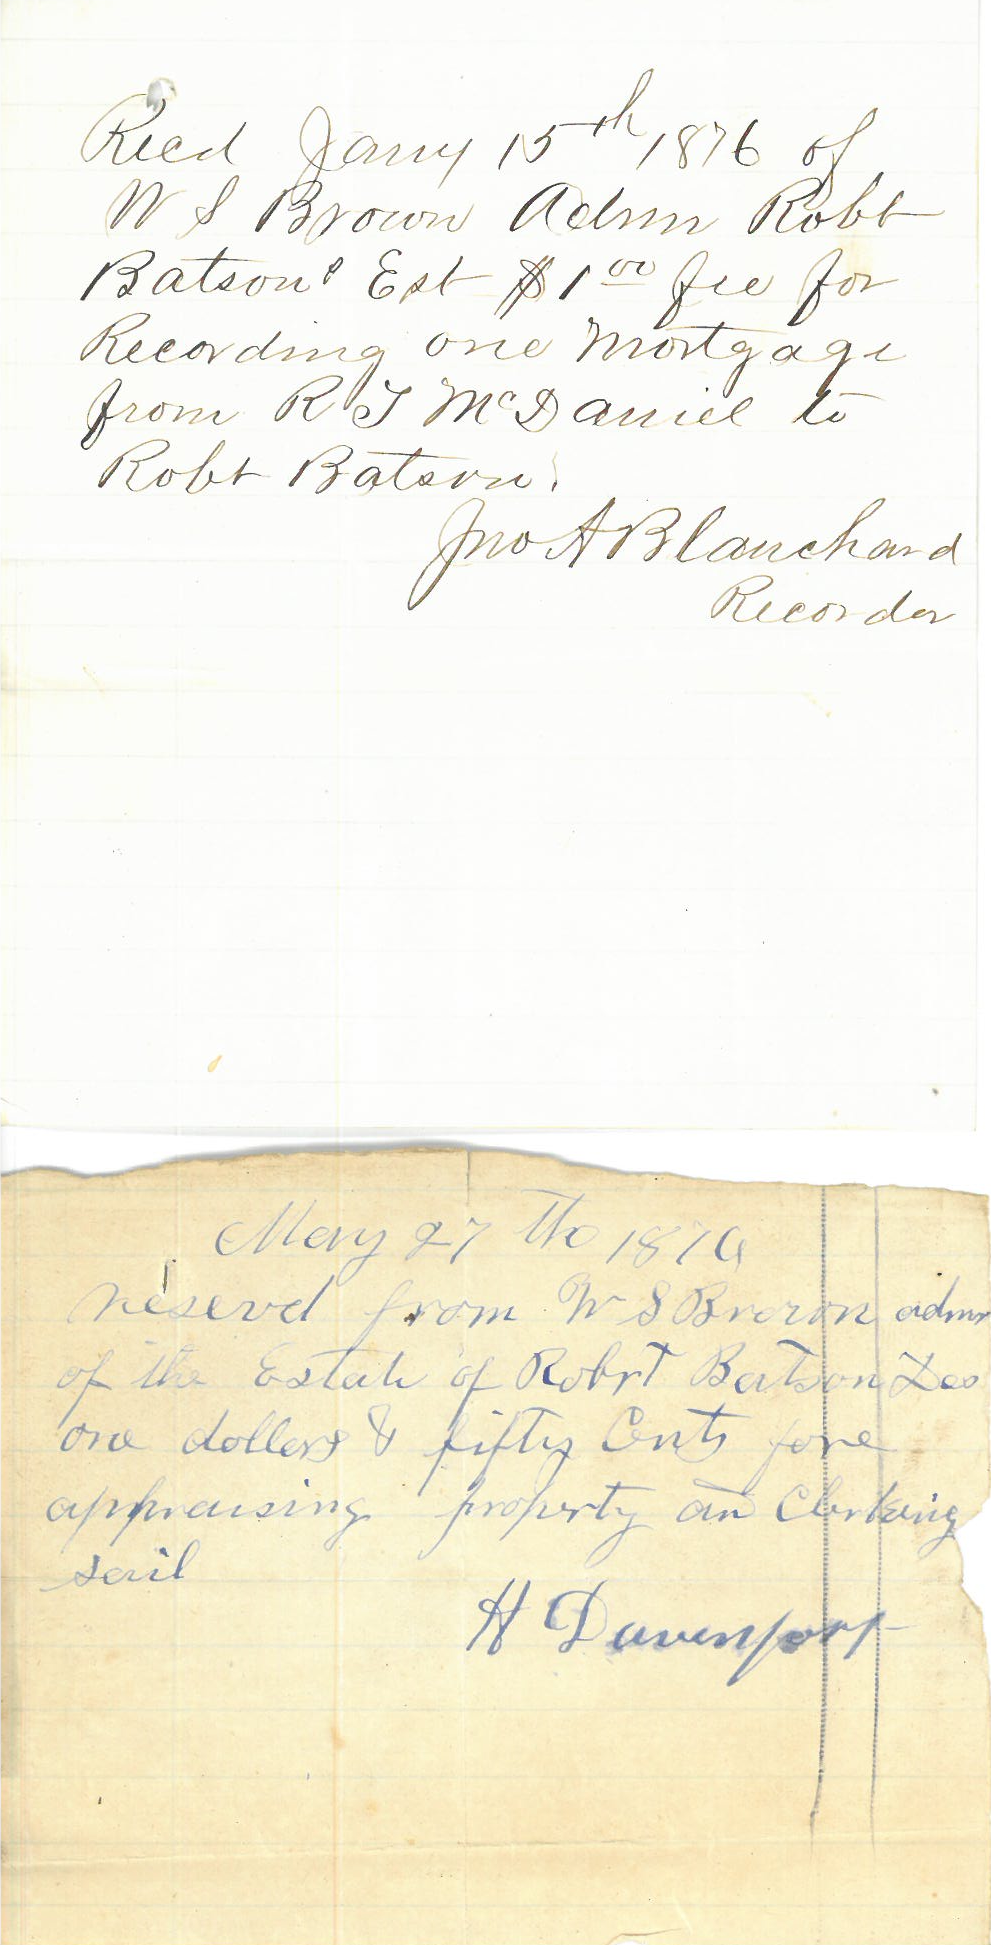 Recd Jany 15th 1876 of
W S Brown Admr Robt
Batsons Est $1.00 fee for
Recording one Mortgage
from R T McDaniel to
Robt Batson.
Jno A Blanchard
Recorder
May 27 th 1876
reservd from W S Brown admr
of the Estate of Robrt Batson Des
one dollers & fifty Cents fore
appraising property an Clerking
sail
H Davenport